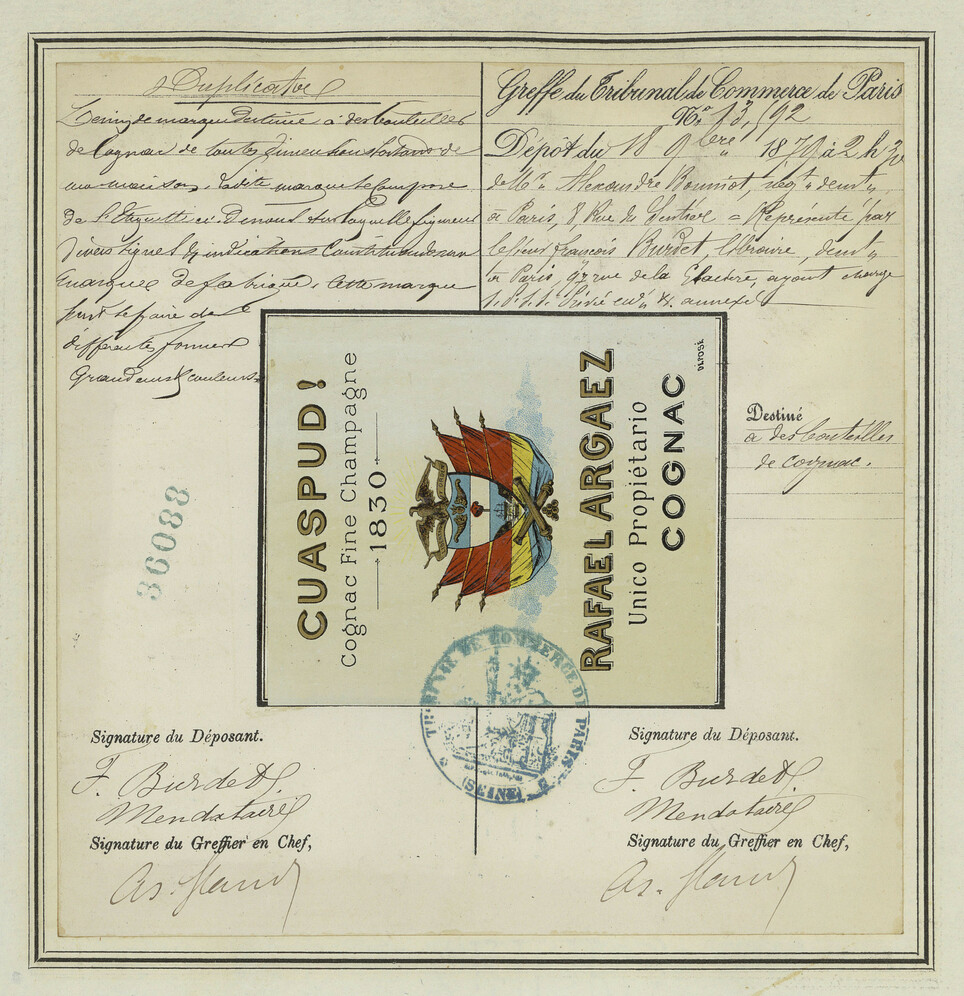 Duplicata
de marque destiné à des bouteilles
de Cognac de toutes dimensions de
ma maison. Ladite marque se compose
de l'Etiquette ci-dessus sur laquelle figurent
divers signes & indications constituant
marque de fabrique. Cette marque
peut se faire de
différentes formes
Grandeurs & couleurs
Greffe du Tribunal de Commerce de Paris
No. 13,592
Dépôt du 18 9bre 1879 à 2 h
de Mr. Alexandre Bonniot, négt demt
à Paris, 8, Rue du Sentier = Représenté par
le Sieur françois Burdet, libraire, demt
à Paris, rue de la Glacière, ayant charge
annexé
CUASPUD!
Cognac Fine Champagne
1830
RAFAEL ARGAEZ
Unico Propiétario
COGNAC
DEPOSÉ
Destiné
à des bouteilles
de cognac.
36088
TRIBUNAL DE COMMERCE DE PARIS
(SEINE)
Signature du Déposant.
F. Burdet
Mendataire
Signature du Greffier en Chef,
Signature du Déposant.
F. Burdet
Mendataire
Signature du Greffier en Chef,